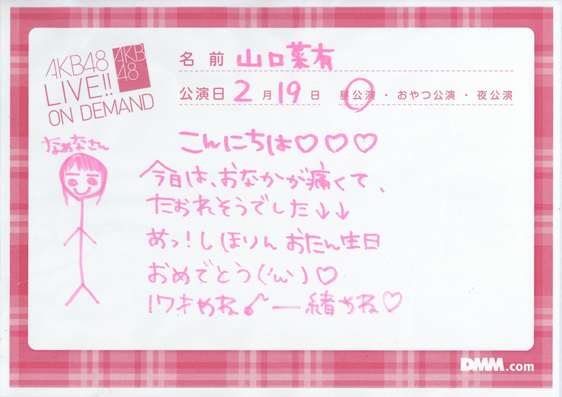 AKB48
LIVE!!
ON DEMAND
AKB
48
名前 山口菜有
公演日 2月19日 昼公演・おやつ公演・夜公演
こんにちは♡♡♡
なめなさん
今日は、おなかが痛くて、
たおれそうでした↓↓
めっ!しほりんおたん生日
おめでとう('ω')♡
17才やね♪一緒やね♡
DMM.com